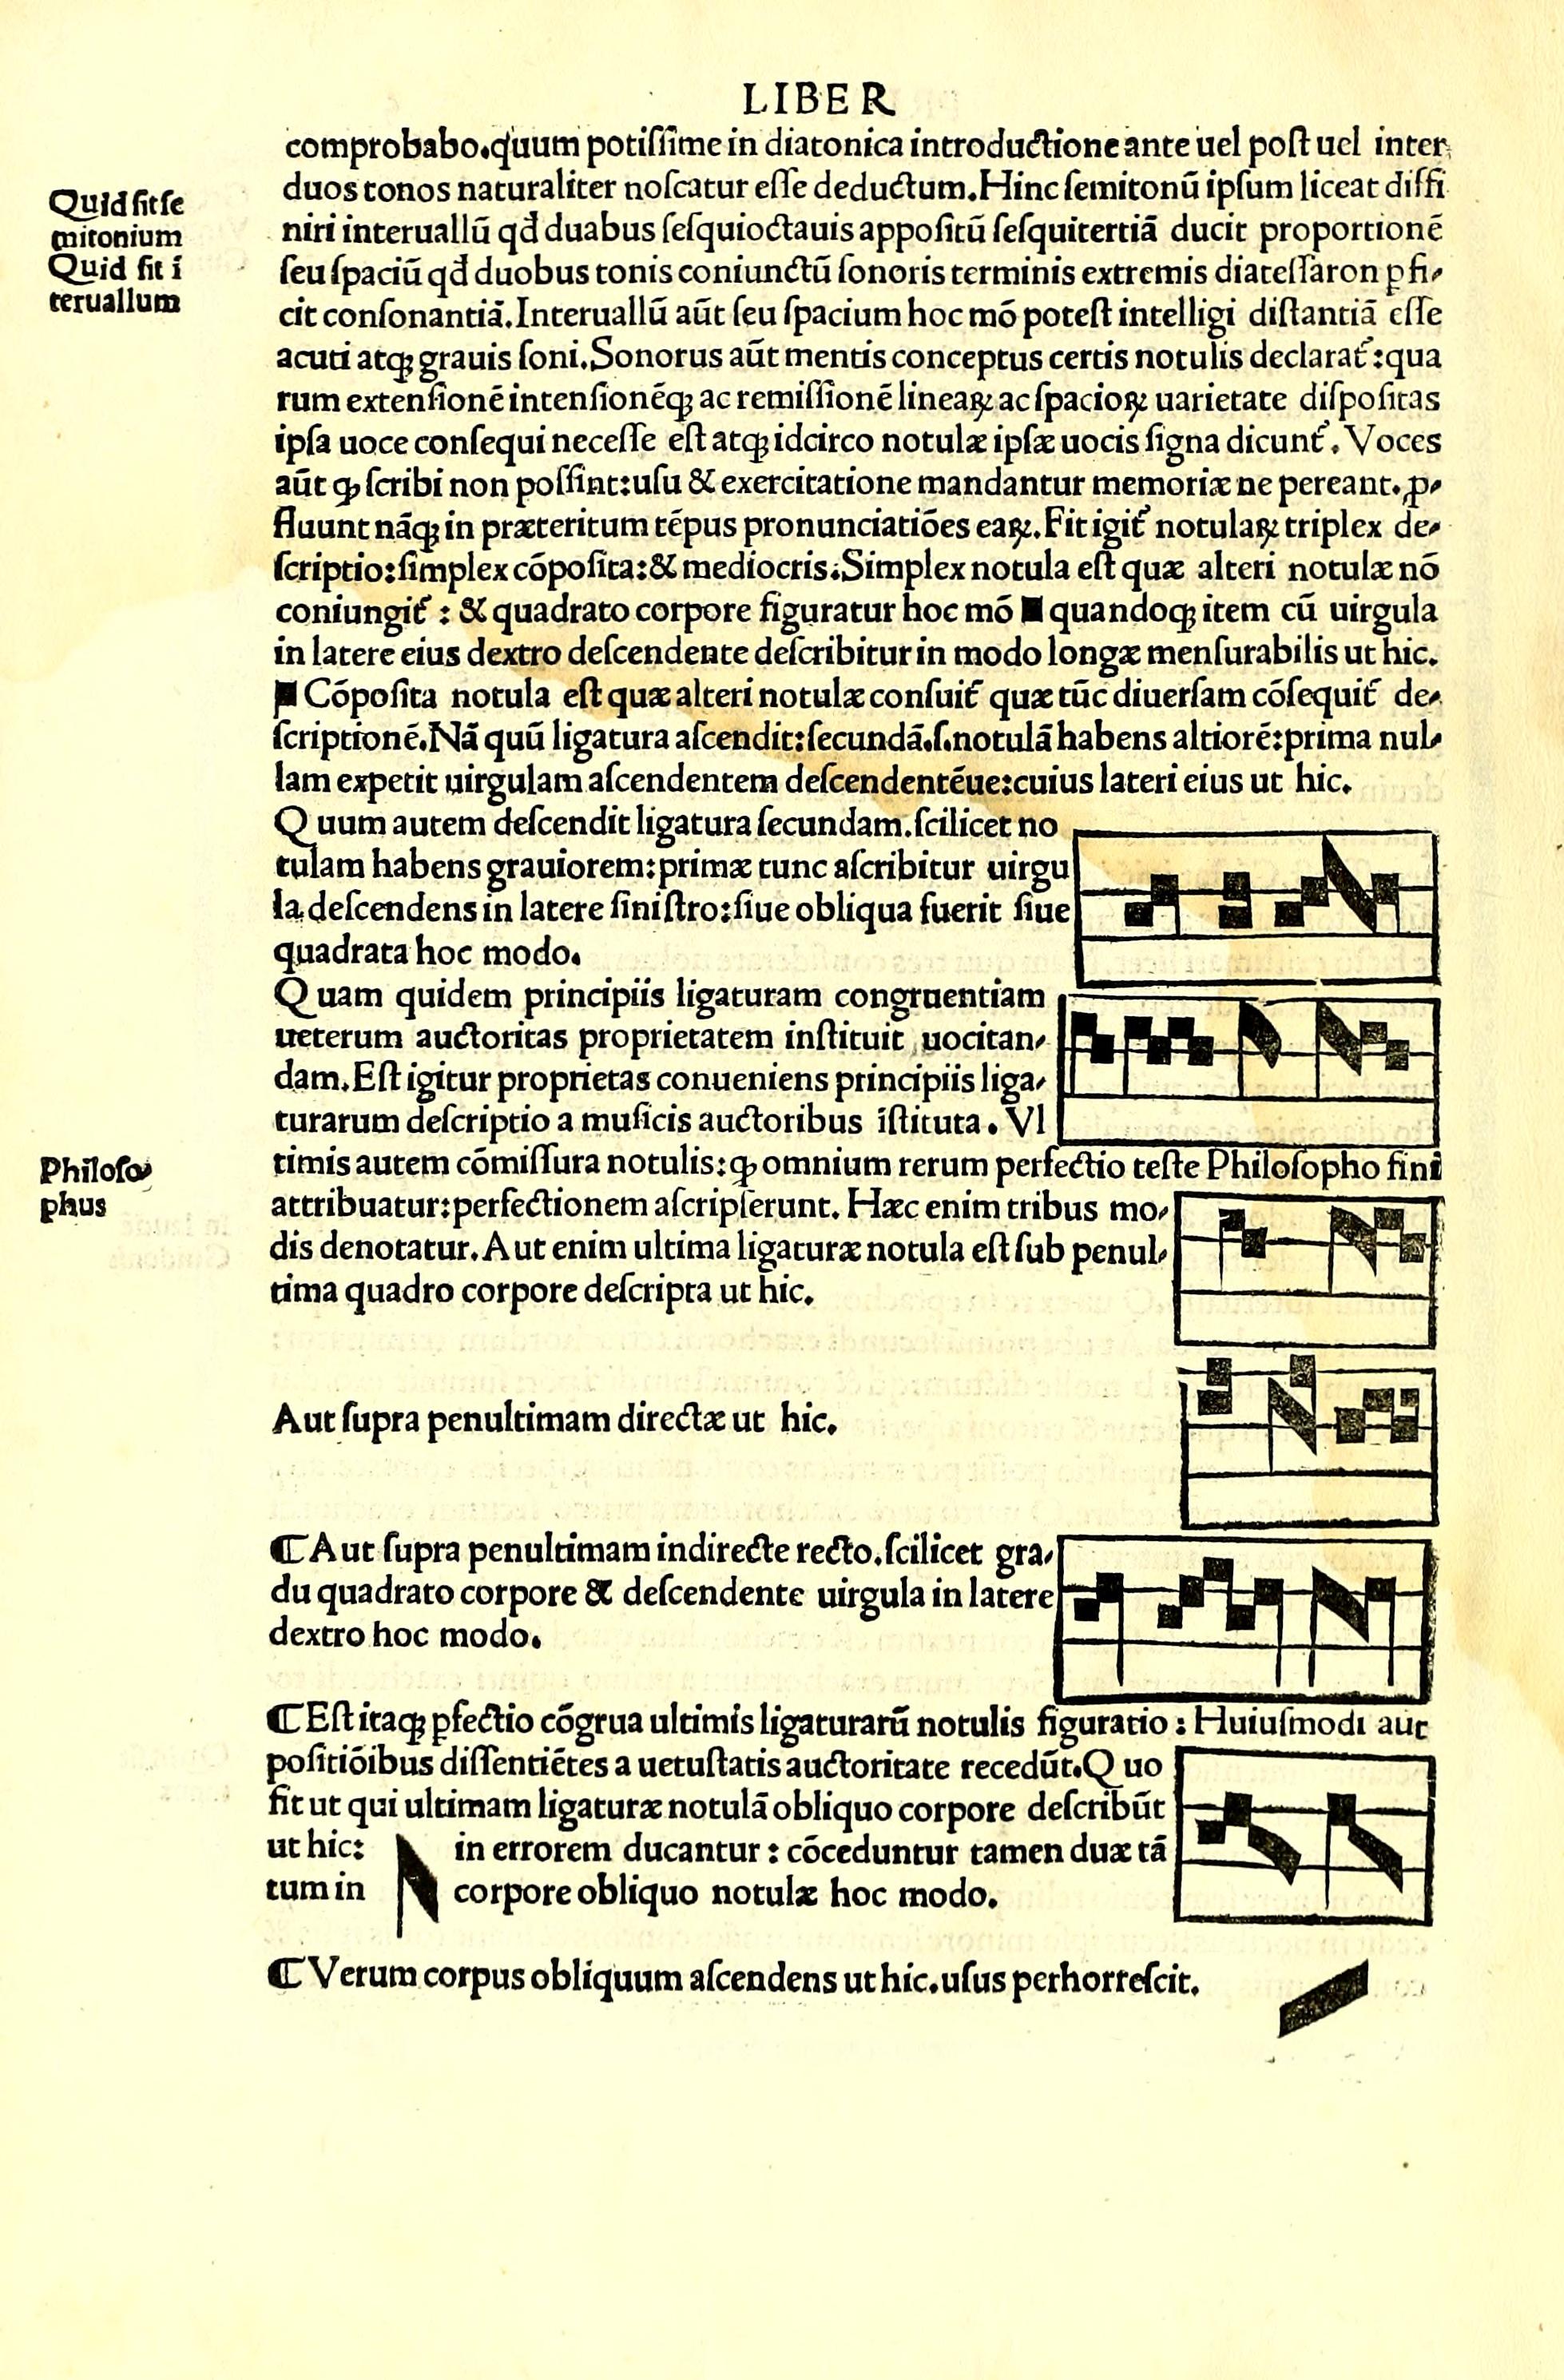 LIBER
comprobabo.quum potissime in diatonica introductione ante uel post uel inter
duos tonos naturaliter noscatur esse deductum.Hinc semitoniū ipsum liceat diffi
niri interuallū qđ duabus sesquioctauis appositū sesquitertiā ducit proportionē
seu spaciū qđ duobus tonis coniunctū sonoris terminis extremis diatessaron ꝑfi-
cit consonantiā.Interuallū aūt seu spacium hoc mō potest intelligi distantiā esse
acuti atqꝫ grauis soni.Sonorus aūt mentis conceptus certis notulis declarat᷑:qua
rum extensionē intensionēqꝫ ac remissionē lineaꝝ ac spacioꝝ uarietate dispositas
ipsa uoce consequi necesse est atqꝫ idcirco notulæ ipsæ uocis signa dicunt᷑. Voces
aūt ꝙ scribi non possint:usu & exercitatione mandantur memoriæ ne pereant.ꝓ-
fluunt nāqꝫ in præteritum tēpus pronunciatiōes eaꝝ.Fit igit᷑ notulaꝝ triplex de-
scriptio:simplex cōposita:& mediocris.Simplex notula est quæ alteri notulæ nō
coniungit᷑ : & quadrato corpore figuratur hoc mō quandoqꝫ item cū uirgula
in latere eius dextro descendente describitur in modo longæ mensurabilis ut hic.
Cōposita notula est quæ alteri notulæ consuit᷑ quæ tūc diuersam cōsequit᷑ de-
scriptionē.Nā quū ligatura ascendit:secundā.s.notulā habens altiorē:prima nul-
lam expetit uirgulam ascendentem descendentēue:cuius lateri eius ut hic.
Quum autem descendit ligatura secundam.scilicet no
tulam habens grauiorem:primæ tunc ascribitur uirgu
la descendens in latere sinistro:siue obliqua fuerit siue
quadrata hoc modo.
Quam quidem principiis ligaturam congruentiam
ueterum auctoritas proprietatem instituit uocitan-
dam.Est igitur proprietas conueniens principiis liga-
turarum descriptio a musicis auctoribus īstituta. Vl
timis autem cōmissura notulis:ꝙ omnium rerum perfectio teste Philosopho fini
attribuatur:perfectionem ascripserunt. Hæc enim tribus mo-
dis denotatur.Aut enim ultima ligaturæ notula est sub penul-
tima quadro corpore descripta ut hic.
Aut supra penultimam directæ ut hic.
¶Aut supra penultimam indirecte recto.scilicet gra-
du quadrato corpore & descendente uirgula in latere
dextro hoc modo.
¶Est itaqꝫ ꝑfectio cōgrua ultimis ligaturarū notulis figuratio : Huiusmodi aut
positiōibus dissentiētes a uetustatis auctoritate recedūt.Quo
fit ut qui ultimam ligaturæ notulā obliquo corpore describūt
ut hic: in errorem ducantur : cōceduntur tamen duæ tā
tum in corpore obliquo notulæ hoc modo.
¶Verum corpus obliquum ascendens ut hic.usus perhorrescit.
Quid sit se
mitonium
Quid sit ī
teruallum
Philoso-
phus